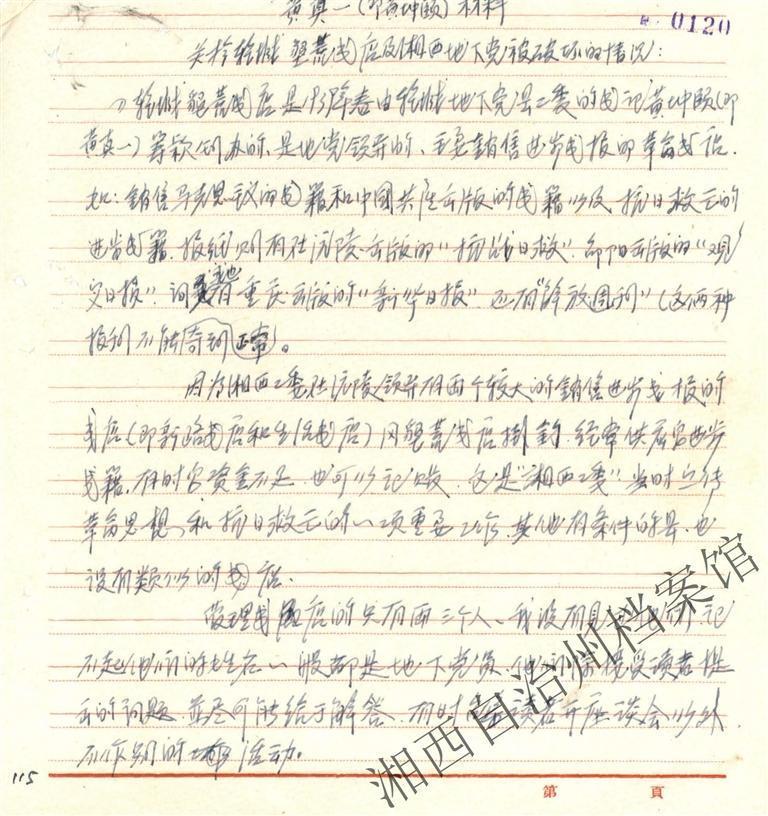 黄真一(即黄坤颐)材料
0120
关於乾城墾荒书店及湘西地下党被破坏的情况:
1)乾城墾荒书店是1938年春由乾城地下党县工委的书记黄坤颐(即
黄真一)筹款创办的、是地党领导的、主要銷售进步书报的革命书店.
如:銷售马克思主义的书籍和中國共产党出版的书籍以及抗日救亡的
进步书籍.报纸则有在沅陵出版的"抗战日报".邵阳出版的"观察
日报".还有重庆出版的"新华日报".还有"解放週刊"(这两种
报刊不能寄到正常)。
因为湘西工委在沅陵领导有两个较大的銷售进步书报的
书店(即新路书店和生活书店)同墾荒书店掛鈎.经常供应它进步
书籍.有时它资金不足.也可以记账.这是"湘西工委"当时宣传
革命思想、和抗日救亡的一项重要工作.其他有条件的县.也
设有类似的书店.
管理书店的只有两三个人、我没有见过他们.记
不起他们的姓名.一般都是地下党员.他们除接受读者提
出的问题.並尽可能给于解答.有时召集读者开座谈会以外.
不作别的活动。
115
第 頁
湘西自治州档案馆